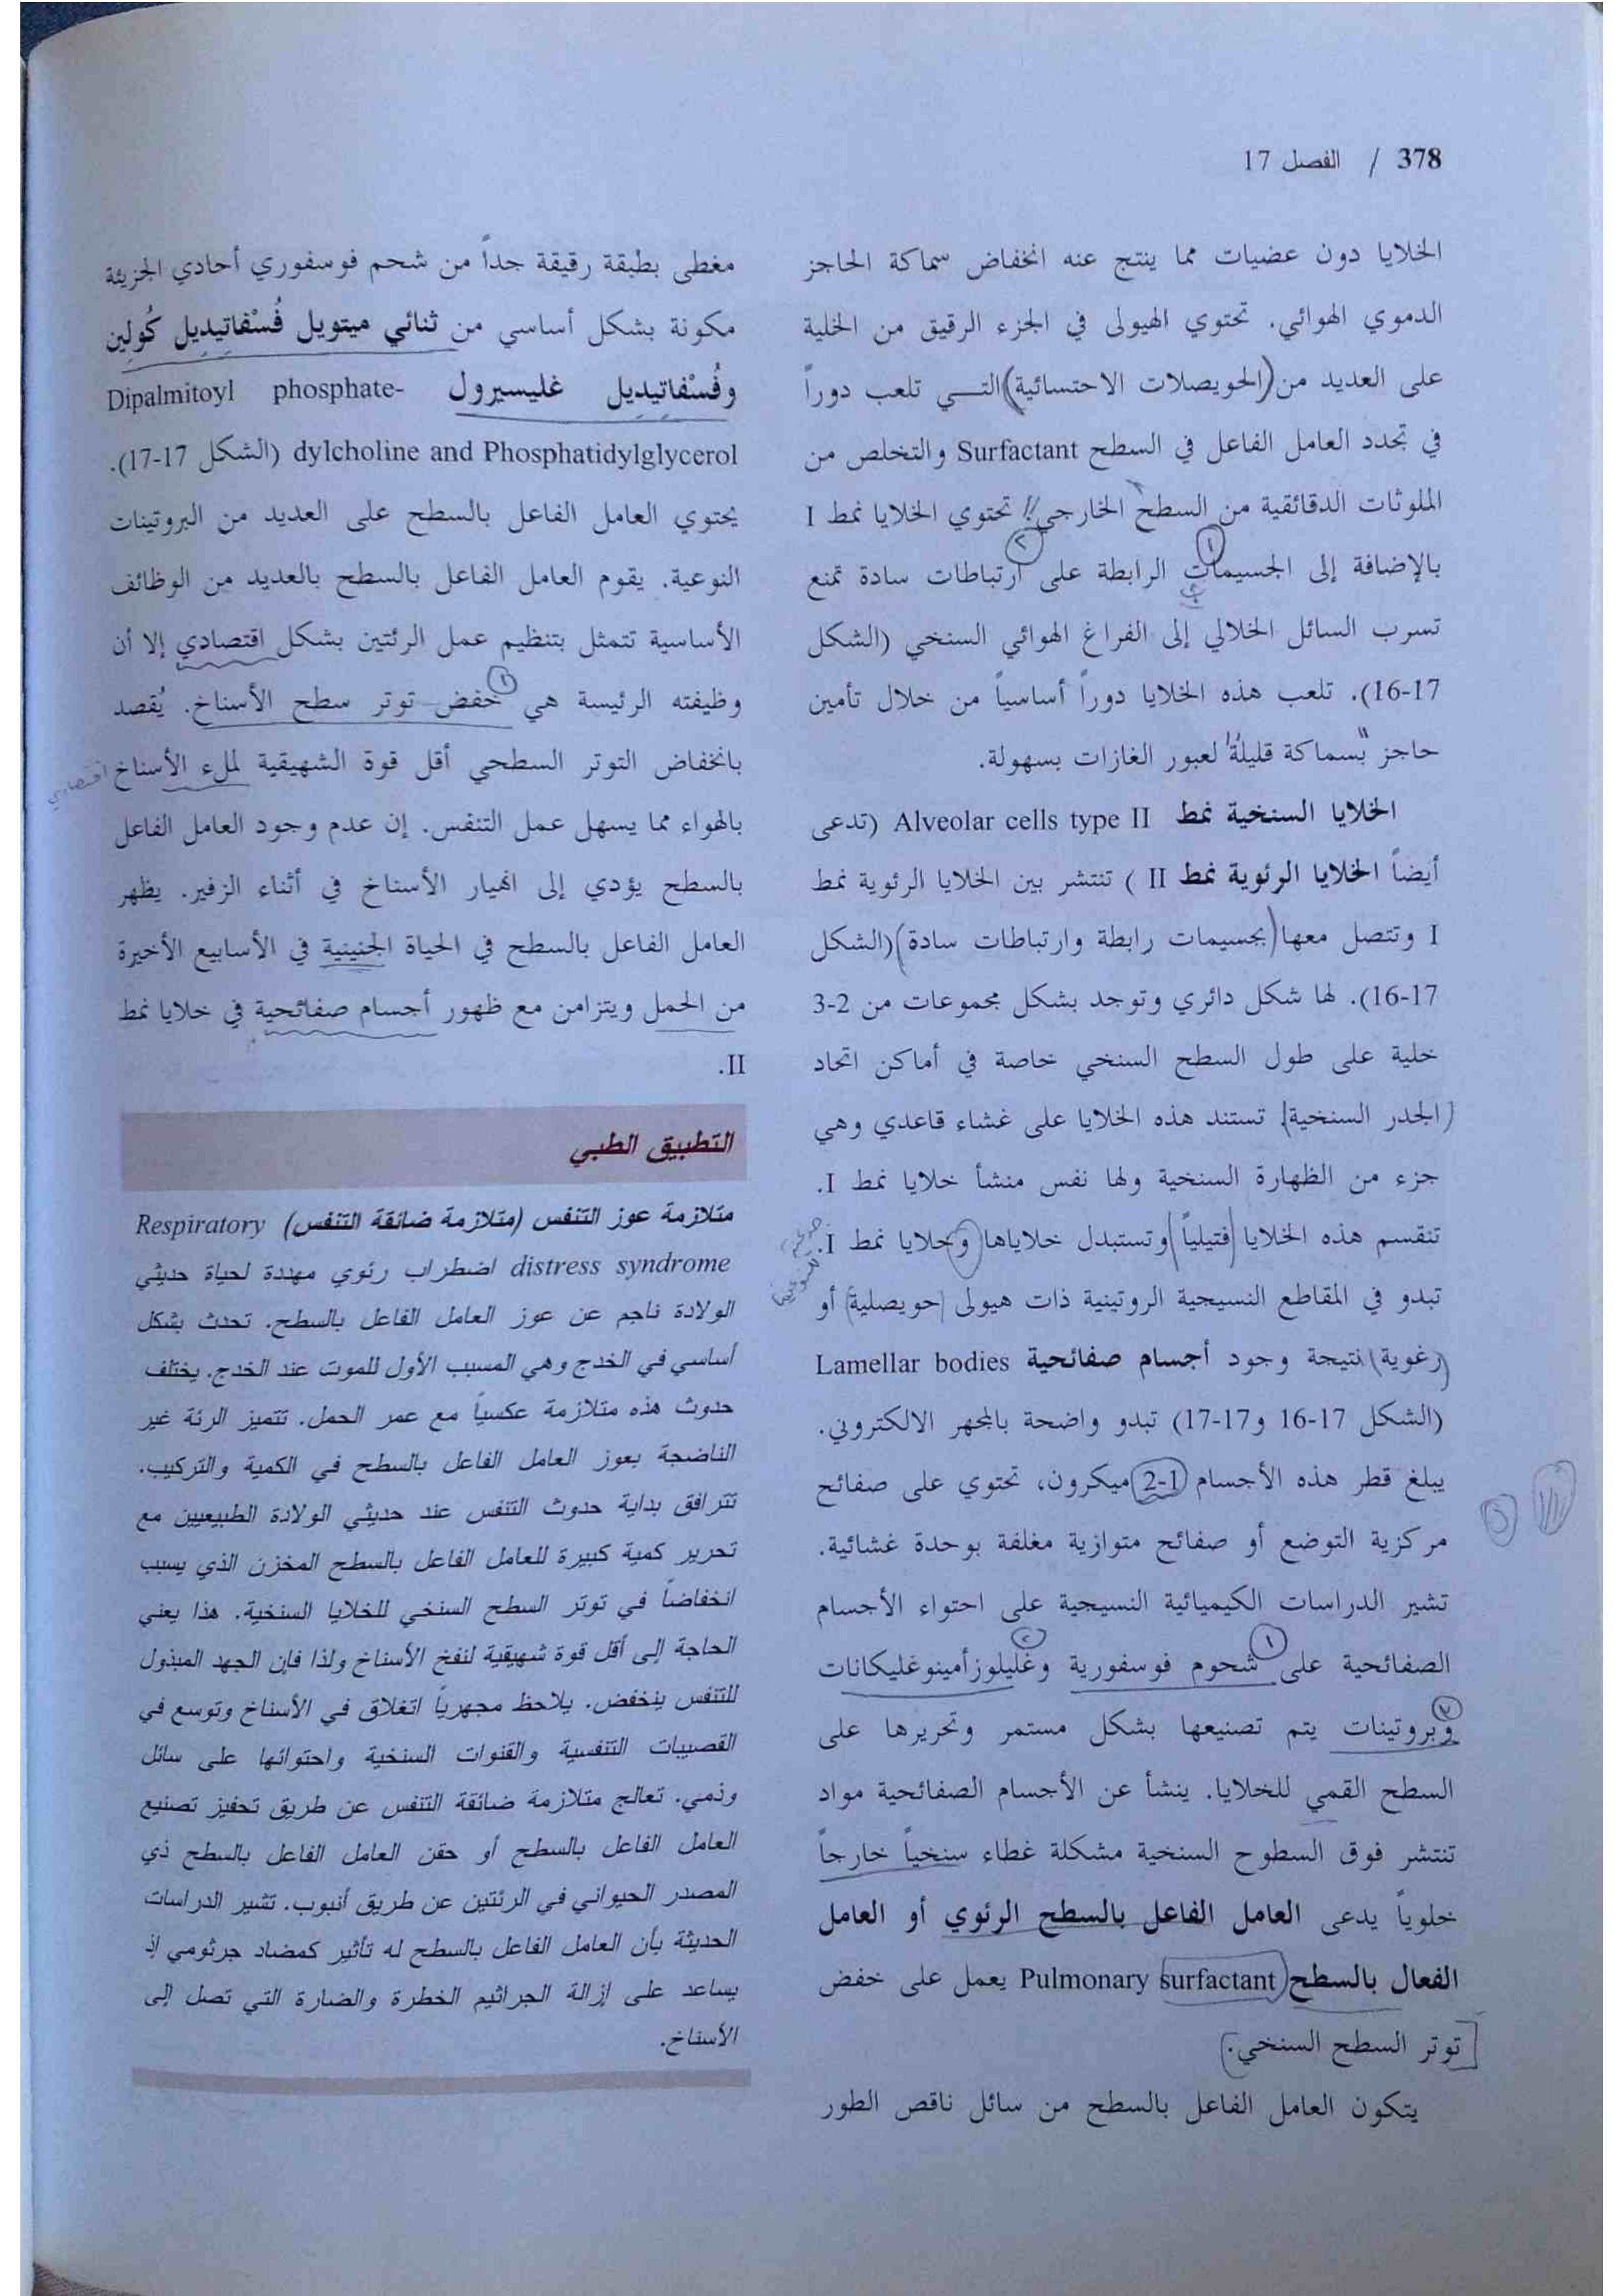 378 / الفصل 17
الخلايا دون عضيات مما ينتج عنه انخفاض سماكة الحاجز
الدموي الهوائي. تحتوي الهيولى في الجزء الرقيق من الخلية
على العديد من (الحويصلات الاحتسائية) التي تلعب دوراً
في تجدد العامل الفاعل في السطح Surfactant والتخلص من
الملوثات الدقائقية من السطح الخارجي. تحتوي الخلايا نمط I
بالإضافة إلى الجسيمات الرابطة على ارتباطات سادة تمنع
تسرب السائل الخلالي إلى الفراغ الهوائي السنخي (الشكل
16-17). تلعب هذه الخلايا دوراً أساسياً من خلال تأمين
حاجز بسماكة قليلة لعبور الغازات بسهولة.
الخلايا السنخية نمط Alveolar cells type II (تدعى
أيضاً الخلايا الرئوية نمط II ) تنتشر بين الخلايا الرئوية نمط
I وتتصل معها (بجسيمات رابطة وارتباطات سادة) (الشكل
16-17). لها شكل دائري وتوجد بشكل مجموعات من 2-3
خلية على طول السطح السنخي خاصة في أماكن اتحاد
الجدر السنخية. تستند هذه الخلايا على غشاء قاعدي وهي
جزء من الظهارة السنخية ولها نفس منشأ خلايا نمط I.
تنقسم هذه الخلايا (فتيلياً) وتستبدل خلاياها وخلايا نمط I.
تبدو في المقاطع النسيجية الروتينية ذات هيولى (حويصلية) أو
(رغوية) نتيجة وجود أجسام صفائحية Lamellar bodies
(الشكل 17-16 و17-17) تبدو واضحة بالمجهر الالكتروني.
يبلغ قطر هذه الأجسام 1-2 ميكرون، تحتوي على صفائح
مركزية التوضع أو صفائح متوازية مغلفة بوحدة غشائية.
تشير الدراسات الكيميائية النسيجية على احتواء الأجسام
الصفائحية على شحوم فوسفورية وغليلوزأمينوغليكانات
وبروتينات يتم تصنيعها بشكل مستمر وتحريرها على
السطح القمي للخلايا. ينشأ عن الأجسام الصفائحية مواد
تنتشر فوق السطوح السنخية مشكلة غطاء سنخياً خارجاً
خلوياً يدعى العامل الفاعل بالسطح الرئوي أو العامل
الفعال بالسطح Pulmonary surfactant يعمل على خفض
توتر السطح السنخي.
يتكون العامل الفاعل بالسطح من سائل ناقص الطور
مغطى بطبقة رقيقة جداً من شحم فوسفوري أحادي الجزيئة
مكونة بشكل أساسي من ثنائي ميتويل فُسْفاتِيدِيل كُولِين
وفُسْفاتِيدِيل غليسيرول Dipalmitoyl phosphate-
dylcholine and Phosphatidylglycerol (الشكل 17-17).
يحتوي العامل الفاعل بالسطح على العديد من البروتينات
النوعية. يقوم العامل الفاعل بالسطح بالعديد من الوظائف
الأساسية تتمثل بتنظيم عمل الرئتين بشكل اقتصادي إلا أن
وظيفته الرئيسة هي خفض توتر سطح الأسناخ. يُقصد
بانخفاض التوتر السطحي أقل قوة الشهيقية لملء الأسناخ اقتصادي
بالهواء مما يسهل عمل التنفس. إن عدم وجود العامل الفاعل
بالسطح يؤدي إلى انهيار الأسناخ في أثناء الزفير. يظهر
العامل الفاعل بالسطح في الحياة الجنينية في الأسابيع الأخيرة
من الحمل ويتزامن مع ظهور أجسام صفائحية في خلايا نمط
II.
التطبيق الطبي
متلازمة عوز التنفس (متلازمة ضائقة التنفس) Respiratory
distress syndrome اضطراب رئوي مهددة لحياة حديثي
الولادة ناجم عن عوز العامل الفاعل بالسطح. تحدث بشكل
أساسي في الخدج وهي المسبب الأول للموت عند الخدج. يختلف
حدوث هذه متلازمة عكسياً مع عمر الحمل. تتميز الرئة غير
الناضجة بعوز العامل الفاعل بالسطح في الكمية والتركيب.
تترافق بداية حدوث التنفس عند حديثي الولادة الطبيعيين مع
تحرير كمية كبيرة للعامل الفاعل بالسطح المخزن الذي يسبب
انخفاضاً في توتر السطح السنخي للخلايا السنخية. هذا يعني
الحاجة إلى أقل قوة شهيقية لنفخ الأسناخ ولذا فإن الجهد المبذول
للتنفس ينخفض. يلاحظ مجهرياً انغلاق في الأسناخ وتوسع في
القصيبات التنفسية والقنوات السنخية واحتوائها على سائل
وذمي. تعالج متلازمة ضائقة التنفس عن طريق تحفيز تصنيع
العامل الفاعل بالسطح أو حقن العامل الفاعل بالسطح ذي
المصدر الحيواني في الرئتين عن طريق أنبوب. تشير الدراسات
الحديثة بأن العامل الفاعل بالسطح له تأثير كمضاد جرثومي إذ
يساعد على إزالة الجراثيم الخطرة والضارة التي تصل إلى
الأسناخ.